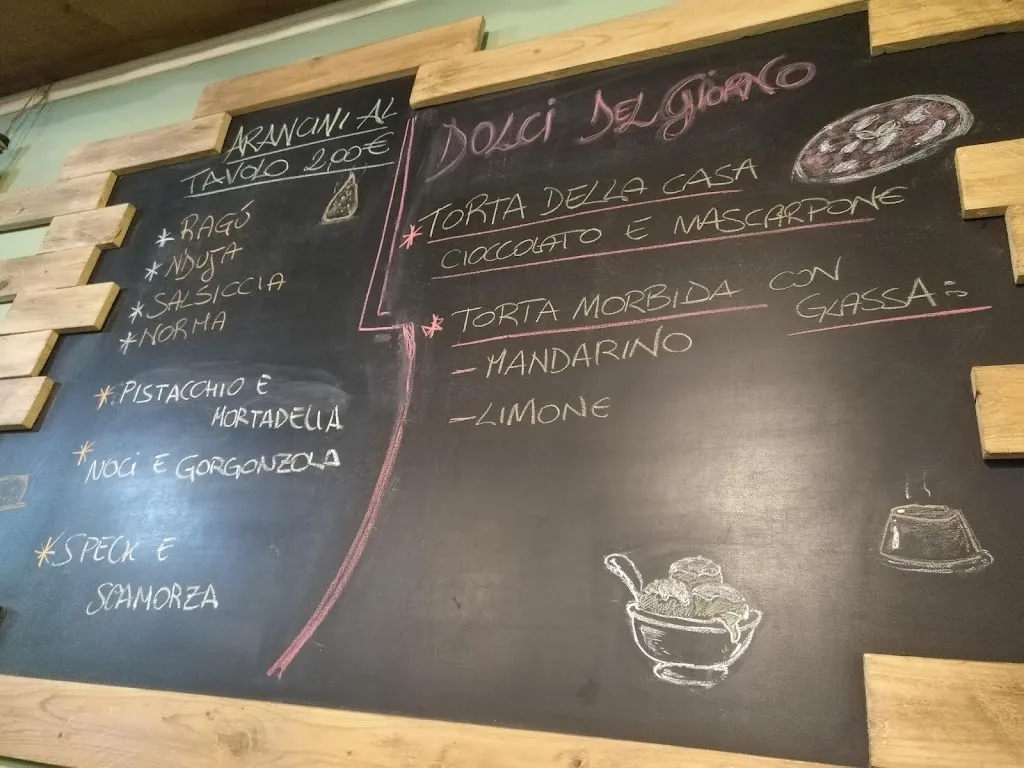 ARANCINI AL
TAVOLO 2,00€
* RAGÚ
* NDUJA
* SALSICCIA
* NORMA
* PISTACCHIO E
MORTADELLA
* NOCI E GORGONZOLA
* SPECK E
SCAMORZA
DOLCI DEL GIORNO
* TORTA DELLA CASA
CIOCCOLATO E MASCARPONE
* TORTA MORBIDA CON
GLASSA:
- MANDARINO
- LIMONE